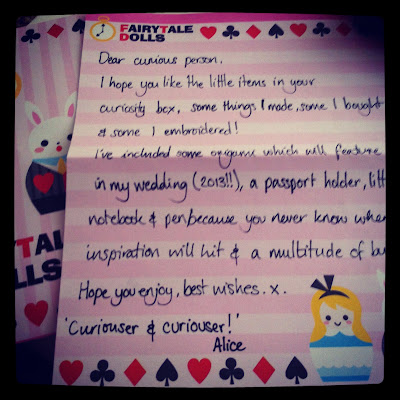 FAIRYTALE
DOLLS
Dear curious person,
I hope you like the little items in your
curiosity box, some things I made, some I bought
& some I embroidered!
I've included some origami which will feature
in my wedding (2013!!), a passport holder, litt
notebook & pen/because you never know when
inspiration will hit & a multitude of bu
Hope you enjoy, best wishes .x.
'Curiouser & curiouser!'
Alice
TAL
DOLLS